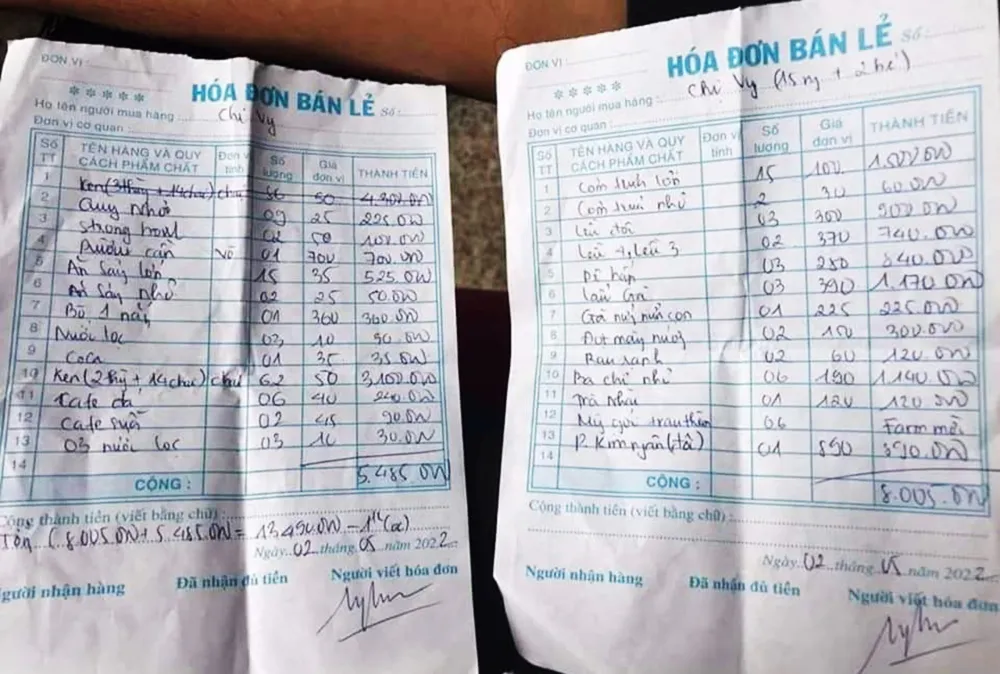 ĐƠN VỊ :
HÓA ĐƠN BÁN LẺ Số:
Họ tên người mua hàng : Chị Vy
Đơn vị cơ quan :
Số TT TÊN HÀNG VÀ QUY CÁCH PHẨM CHẤT Đơn vị tính Số lượng Giá đơn vị THÀNH TIỀN
1 Ken (3 thùng + 14 chai) chai 86 50 4.300.000
2 Quy Nhơn 09 25 225.000
3 Strong bowl 02 50 100.000
4 Rượu cần Vò 01 700 700.000
5 Ăn sáng lớn 15 35 525.000
6 Ăn sáng nhỏ 02 25 50.000
7 Bò 1 nắng 01 360 360.000
8 Nước lọc 10
9 Coca 01 35 35.000
10 Ken (2 thùng + 14 chai) chai 62 50 3.100.000
11 Cafe đá 06 40 240.000
12 Cafe sữa 02 45 90.000
13 03 nước lọc 03 10 30.000
14
CỘNG : 5.485.000
Cộng thành tiền (viết bằng chữ) :
Tổng (8.005.000 + 5.485.000 = 13.490.000 - 1tr (cọc)
Ngày..02..tháng..05..năm 2022
Người nhận hàng Đã nhận đủ tiền Người viết hóa đơn
ĐƠN VỊ :
HÓA ĐƠN BÁN LẺ Số:
Họ tên người mua hàng : Chị Vy (15 ng + 2 bé)
Đơn vị cơ quan :
Số TT TÊN HÀNG VÀ QUY CÁCH PHẨM CHẤT Đơn vị tính Số lượng Giá đơn vị THÀNH TIỀN
1 Cắm trại lớn 15 100 1.500.000
2 Cắm trại nhỏ 2 30 60.000
3 Lều đôi 03 300 900.000
4 Lều 4, Lều 3 02 370 740.000
5 Dê hấp 03 280 840.000
6 Lẩu Gà 03 390 1.170.000
7 Gà nướng con 01 225 225.000
8 nướng 02 150 300.000
9 Rau xanh 02 60 120.000
10 Ba chỉ nhỏ 06 190 1.140.000
11 Trà Nhài 01 120 120.000
12 Mỳ gói Farm mời
13 P. Kim ngân 01 890
14
CỘNG : 8.005.000
Cộng thành tiền (viết bằng chữ) :
Ngày..02..tháng..05..năm 2022
Người nhận hàng Đã nhận đủ tiền Người viết hóa đơn